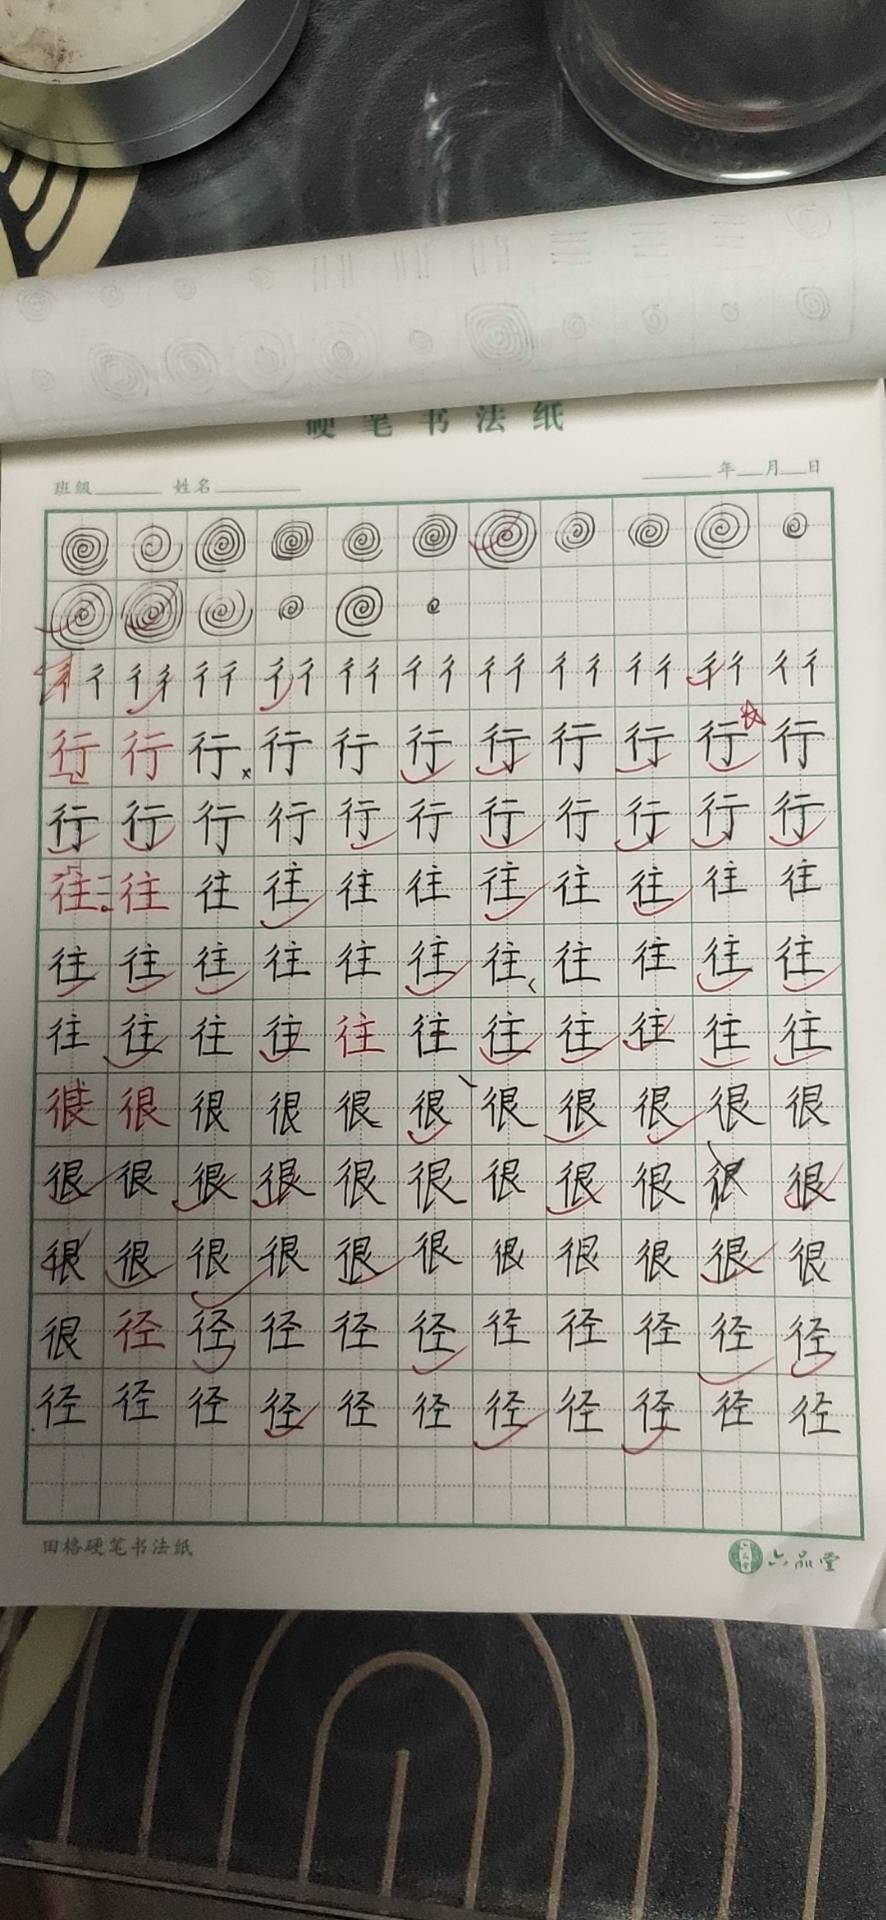 硬笔书法纸
班级 姓名 年 月 日
彳彳彳彳彳彳彳彳彳彳彳彳彳彳彳彳彳彳彳彳彳彳
行行行行行行行行行行行
行行行行行行行行行行行
往往往往往往往往往往往
往往往往往往往往往往往
往往往往往往往往往往往
很很很很很很很很很很很
很很很很很很很很很很很
很很很很很很很很很很很
很径径径径径径径径径径
径径径径径径径径径径径
田格硬笔书法纸
六品堂